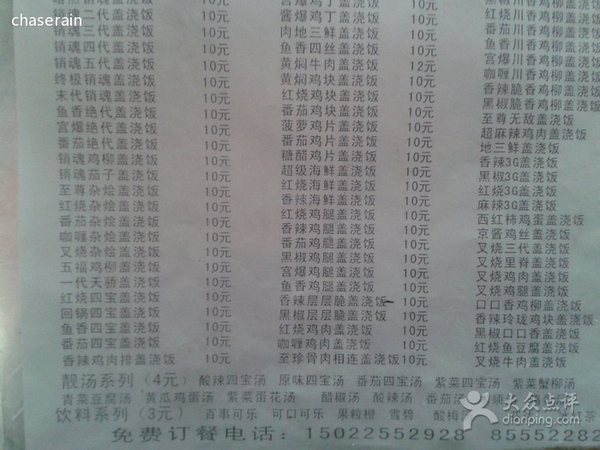 chaserain
销魂二代盖浇饭 10元
销魂三代盖浇饭 10元
销魂四代盖浇饭 10元
销魂五代盖浇饭 10元
终极销魂盖浇饭 10元
末代销魂盖浇饭 10元
鱼香绝代盖浇饭 10元
宫爆绝代盖浇饭 10元
番茄绝代盖浇饭 10元
销魂鸡柳盖浇饭 10元
销魂茄子盖浇饭 10元
至尊杂烩盖浇饭 10元
红烧杂烩盖浇饭 10元
番茄杂烩盖浇饭 10元
咖喱杂烩盖浇饭 10元
叉烧杂烩盖浇饭 10元
五福鸡柳盖浇饭 10元
一代天骄盖浇饭 10元
红烧四宝盖浇饭 10元
回锅四宝盖浇饭 10元
鱼香四宝盖浇饭 10元
番茄四宝盖浇饭 10元
香辣鸡肉排盖浇饭 10元
宫爆鸡丁盖浇饭 10元
酱爆鸡丁盖浇饭 10元
肉地三鲜盖浇饭 10元
鱼香四丝盖浇饭 10元
黄焖牛肉盖浇饭 12元
黄焖鸡块盖浇饭 10元
红烧鸡块盖浇饭 10元
番茄鸡块盖浇饭 10元
菠萝鸡片盖浇饭 10元
番茄鸡片盖浇饭 10元
糖醋鸡片盖浇饭 10元
超级海鲜盖浇饭 10元
红烧海鲜盖浇饭 10元
香辣海鲜盖浇饭 10元
红烧鸡腿盖浇饭 10元
香辣鸡腿盖浇饭 10元
番茄鸡腿盖浇饭 10元
黑椒鸡腿盖浇饭 10元
宫爆鸡腿盖浇饭 10元
红烧鸡腿盖浇饭 10元
香辣层层脆盖浇饭 10元
黑椒层层脆盖浇饭 10元
红烧鸡肉盖浇饭 10元
咖喱鸡肉盖浇饭 10元
至珍骨肉相连盖浇饭 10元
宫爆川香鸡柳盖浇饭
黑椒川香鸡柳盖浇饭
红烧川香鸡柳盖浇饭
番茄川香鸡柳盖浇饭
宫爆川香鸡柳盖浇饭
咖喱川香鸡柳盖浇饭
香辣脆香鸡柳盖浇饭
黑椒脆香鸡柳盖浇饭
至尊无敌盖浇饭
超麻辣鸡肉盖浇饭
地三鲜盖浇饭
香辣3G盖浇饭
黑椒3G盖浇饭
红烧3G盖浇饭
麻辣3G盖浇饭
西红柿鸡蛋盖浇饭
京酱鸡丝盖浇饭
叉烧三代盖浇饭
叉烧里脊盖浇饭
叉烧鸡肉盖浇饭
叉烧鸡腿盖浇饭
口口香鸡柳盖浇饭
香辣玲珑鸡块盖浇饭
黑椒口口香盖浇饭
红烧鱼豆腐盖浇饭
叉烧牛肉盖浇饭
靓汤系列（4元） 酸辣四宝汤 原味四宝汤 番茄四宝汤 紫菜四宝汤 紫菜蟹柳汤
青菜豆腐汤 黄瓜鸡蛋汤 紫菜蛋花汤 醋椒汤 酸辣汤
饮料系列（3元） 百事可乐 可口可乐 果粒橙 雪碧 酸梅
免费订餐电话：15022552928 85552282
大众点评
dianping.com